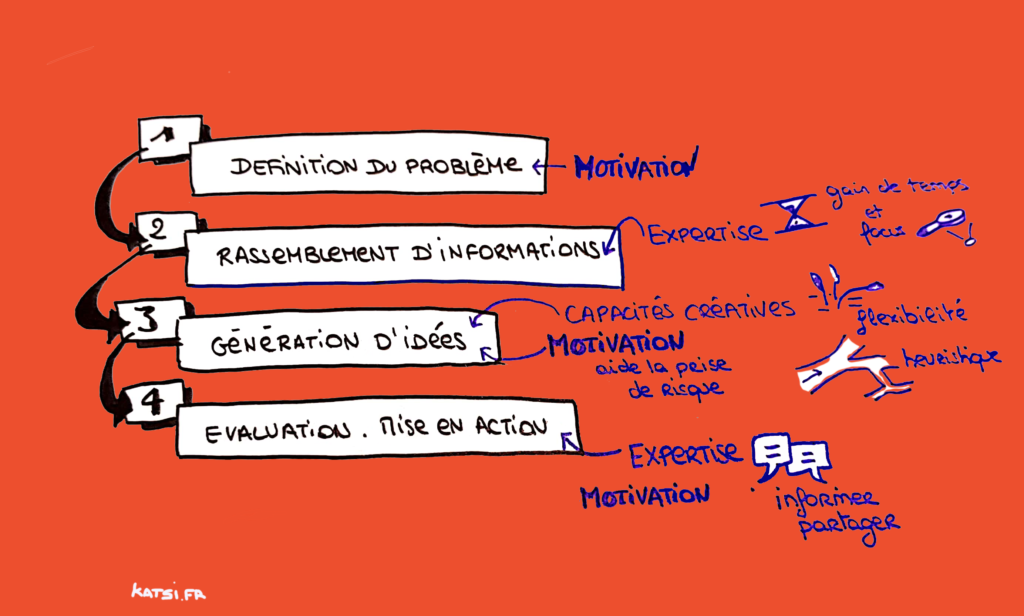 1
DEFINITION DU PROBLÈME
MOTIVATION
2
RASSEMBLEMENT D'INFORMATIONS
EXPERTISE
gain de temps
et
focus
3
GÉNÉRATION D'IDÉES
CAPACITÉS CRÉATIVES
flexibilité
MOTIVATION
aide la prise
de risque
heuristique
4
EVALUATION. MISE EN ACTION
EXPERTISE
MOTIVATION
informer
partager
KATSI.FR